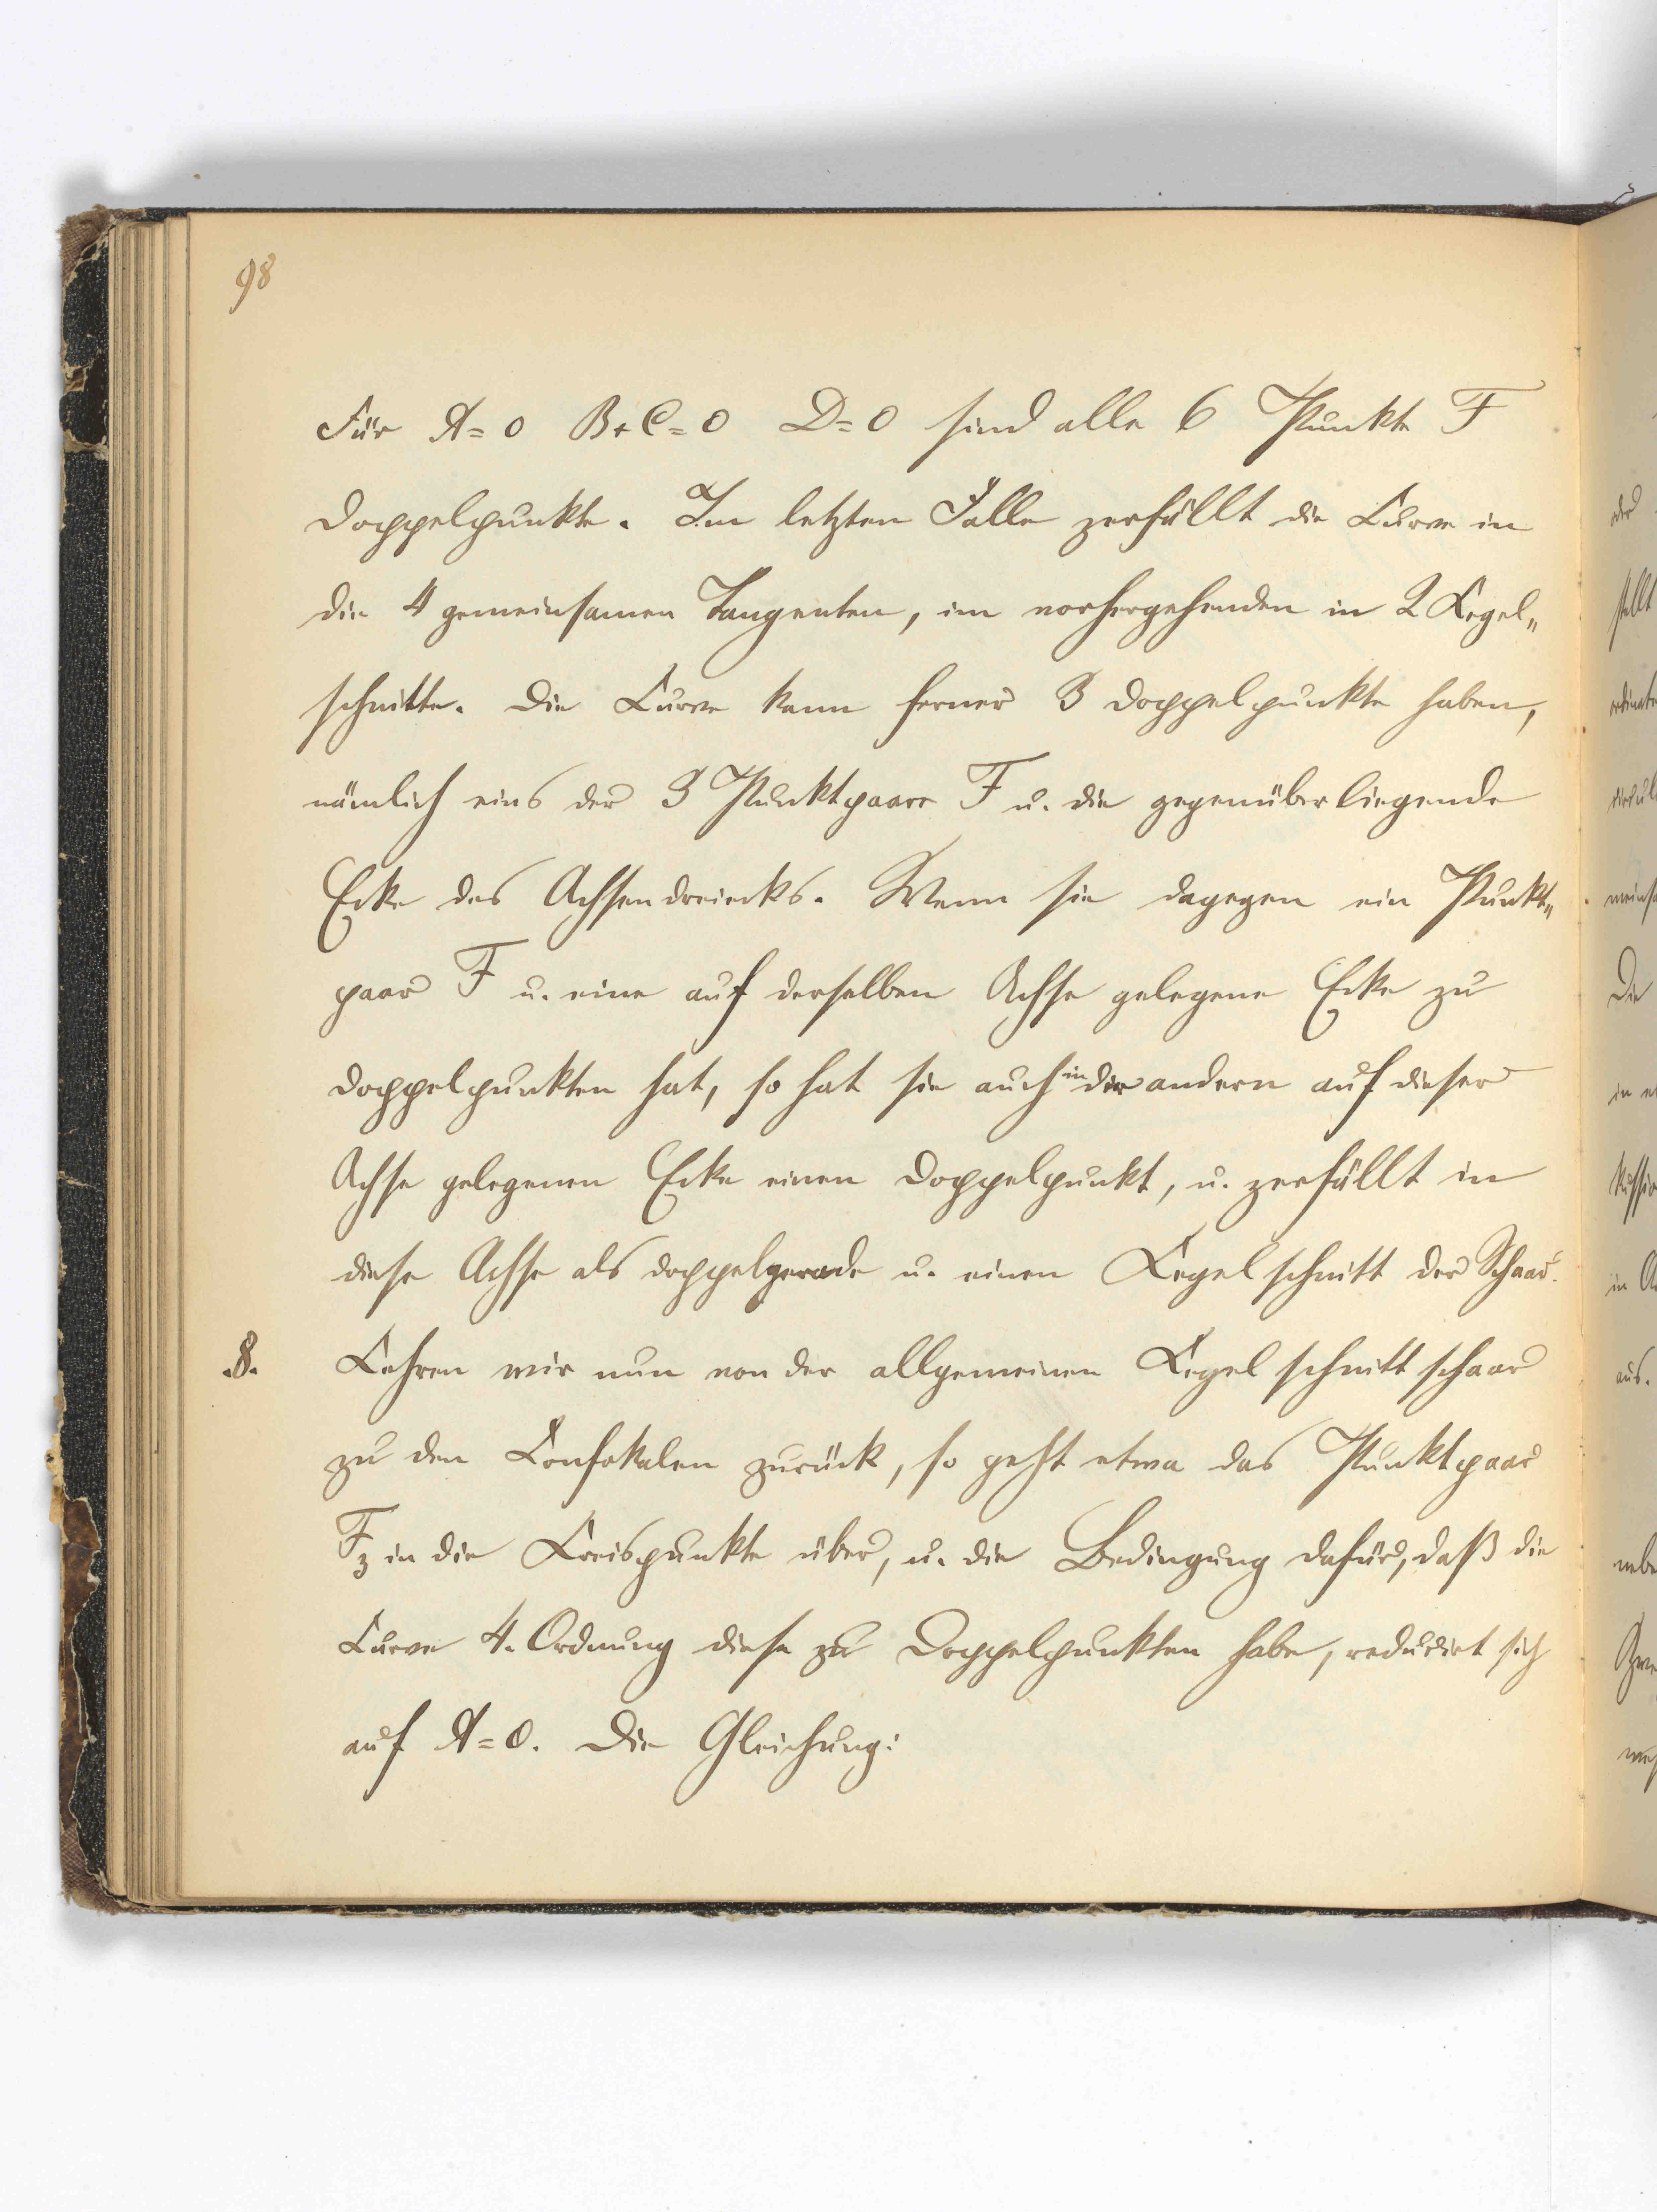 98
Für A=0 B+C=0 D=0 sind alle 6 Punkte F
Doppelpunkte. Im letzten Falle zerfällt die Curve in
die 4 gemeinsamen Tangenten, im vorhergehenden in 2 Kegel„
schnitte. Die Curve kann ferner 3 Doppelpunkte haben,
nämlich eins der 3 Punktpaare F u. die gegenüberliegende
Ecke des Achsendreiecks. Wenn sie dagegen ein Punkt„
paar F u. eine auf derselben Achse gelegene Ecke zu
Doppelpunkten hat, so hat sie auch in der andern auf dieser
Achse gelegenen Ecke einen Doppelpunkt, u. zerfällt in
diese Achse als Doppelgerade u. einen Kegelschnitt der Schaar.
.8. Kehren wir nun von der allgemeinen Kegelschnittschaar
zu den Confokalen zurück, so geht etwa das Punktpaar
F₃ in die Kreispunkte über, u. die Bedingung dafür, daß die
Curve 4. Ordnung diese zu Doppelpunkten habe, reducirt sich
auf A=0. Die Gleichung: